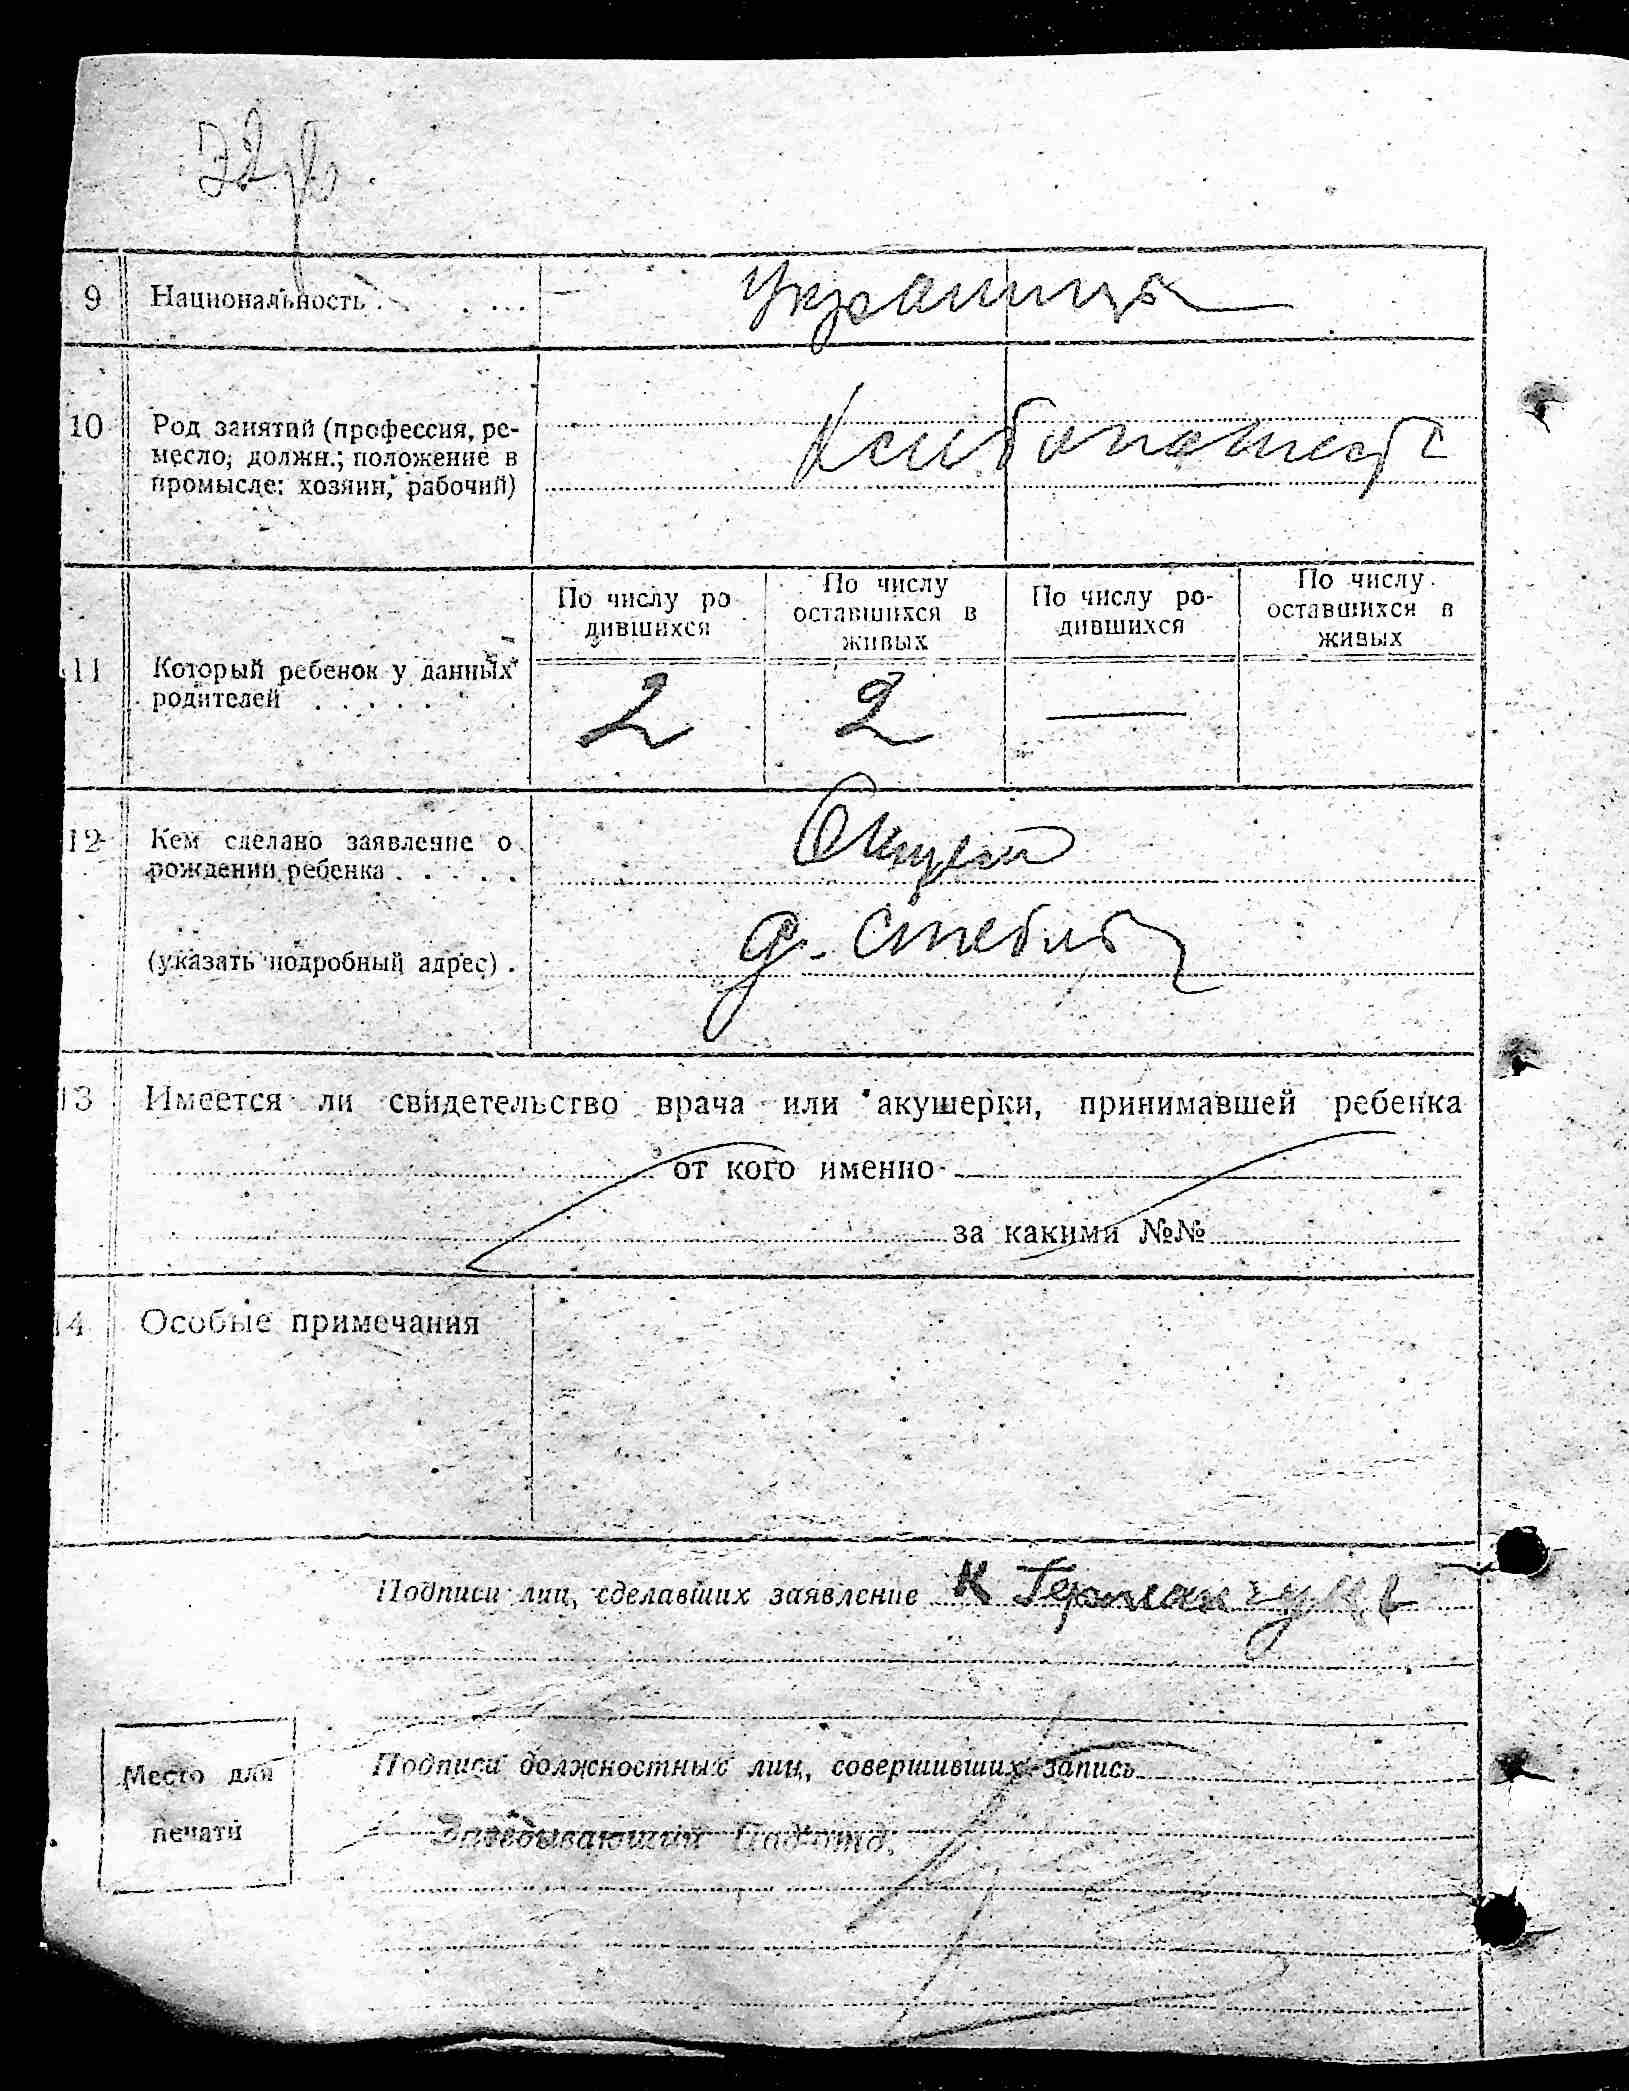 9 Национальность . . . . Украинцы
10 Род занятий (профессия, ре-
месло; должн.; положение в
промысле: хозяин, рабочий)
По числу ро
дившихся
По числу
оставшихся в
живых
По числу ро-
дившихся
По числу
оставшихся в
живых
11 Который ребенок у данных
родителей . . . . . . 2 2 —
12 Кем сделано заявление о
рождении ребенка . . . . . Отцем
(указать подробный адрес) . д. Стебли
13 Имеется ли свидетельство врача или акушерки, принимавшей ребенка
от кого именно
за какими №№
14 Особые примечания
Подписи лиц, сделавших заявление К Германчукъ
Место для
печати
Подписи должностных лиц, совершивших запись
Заведывающий Подотд.